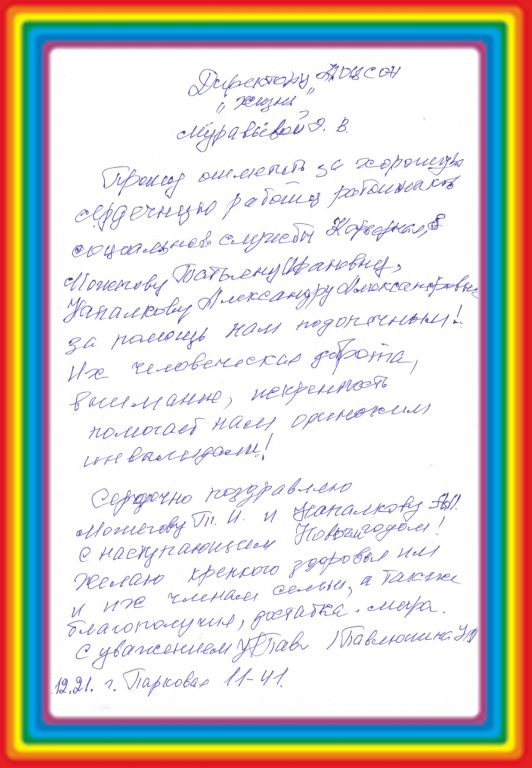 Директору АНЦСОН
"Жизнь"
Муравьёвой Э. В.
Прошу отметить за хорошую
сердечную работу работников
социальной службы
Можегову Татьяну Ивановну,
Напалкову Александру Александровну
за помощь нам подопечным!
Их человеческая доброта,
внимание, искренность
помогает нам одиноким
инвалидам!
Сердечно поздравляю
Можегову Т. И. и Напалкову А.А.
с наступающим Новым годом!
Желаю крепкого здоровья им
и их членам семьи, а также
благополучия, достатка, мира.
С уважением
12.21. г. Парковая 11-41.